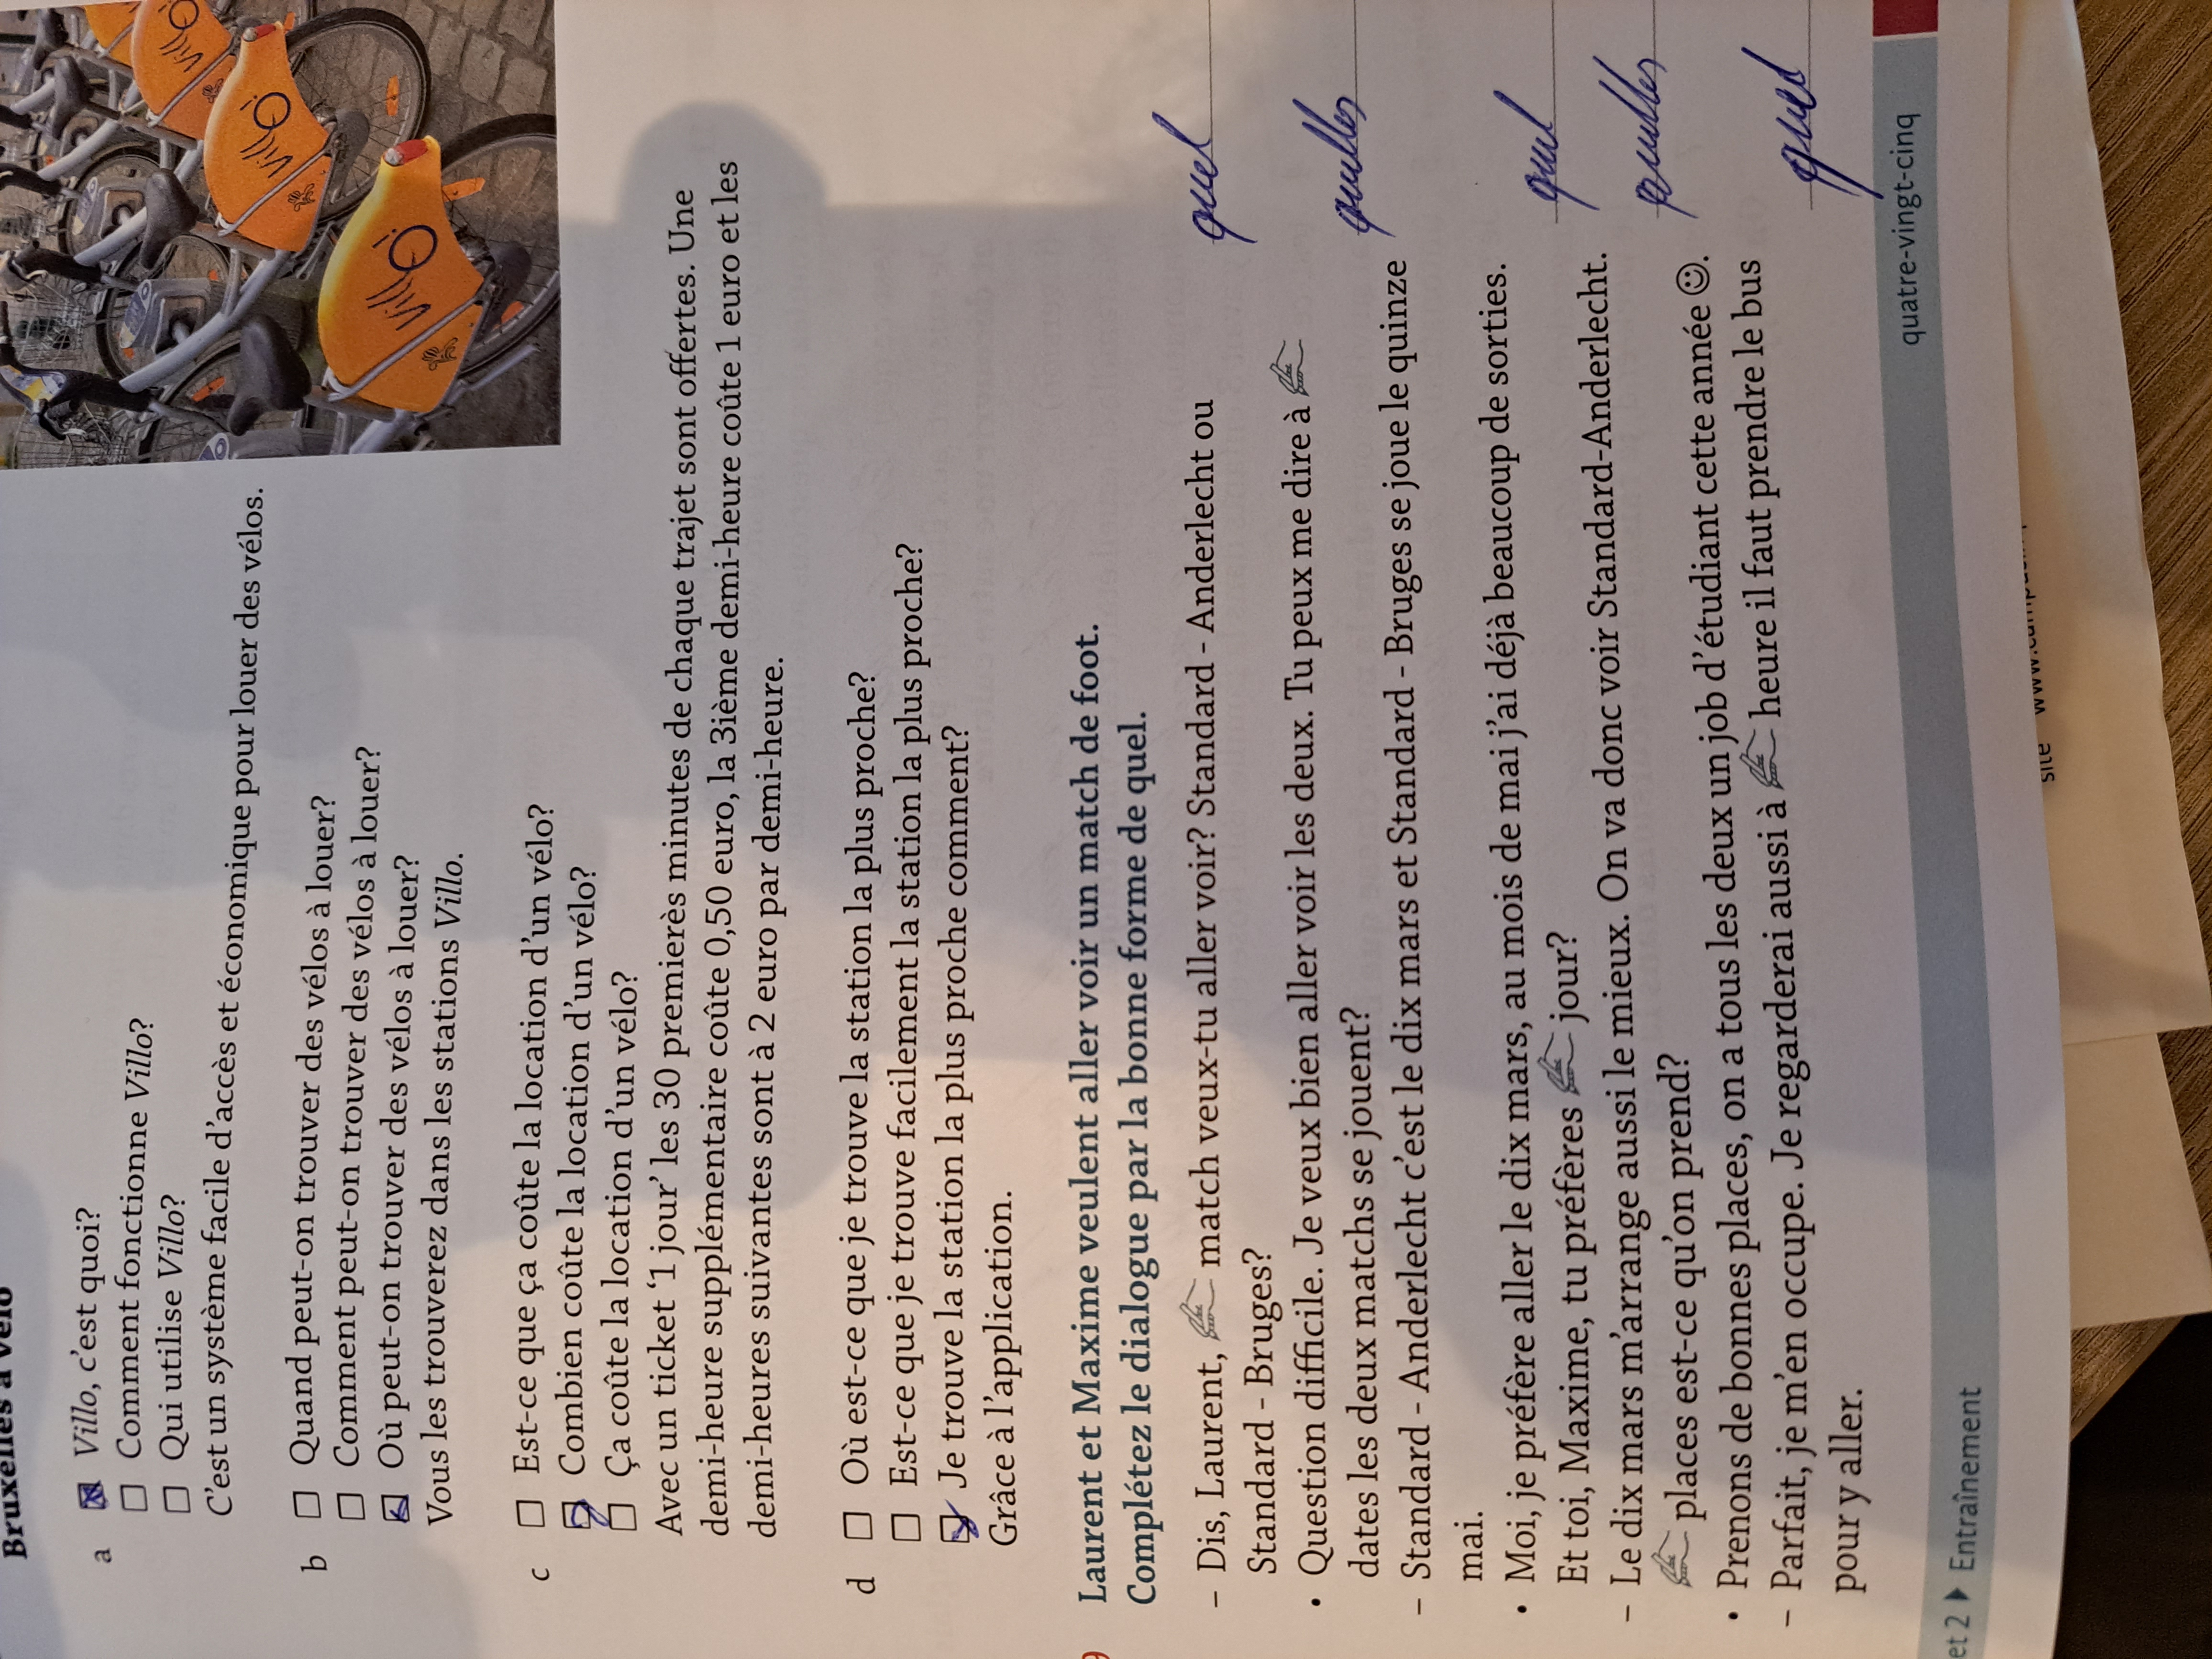 Bruxelles à vélo
a ☒ Villo, c'est quoi?
☐ Comment fonctionne Villo?
☐ Qui utilise Villo?
C'est un système facile d'accès et économique pour louer des vélos.
b ☐ Quand peut-on trouver des vélos à louer?
☐ Comment peut-on trouver des vélos à louer?
☑ Où peut-on trouver des vélos à louer?
Vous les trouverez dans les stations Villo.
c ☐ Est-ce que ça coûte la location d'un vélo?
☑ Combien coûte la location d'un vélo?
☐ Ça coûte la location d'un vélo?
Avec un ticket ‘1 jour’ les 30 premierès minutes de chaque trajet sont offertes. Une
demi-heure supplémentaire coûte 0,50 euro, la 3ième demi-heure coûte 1 euro et les
demi-heures suivantes sont à 2 euro par demi-heure.
d ☐ Où est-ce que je trouve la station la plus proche?
☐ Est-ce que je trouve facilement la station la plus proche?
☑ Je trouve la station la plus proche comment?
Grâce à l'application.
Villo!
Villo!
Villo!
9 Laurent et Maxime veulent aller voir un match de foot.
Complétez le dialogue par la bonne forme de quel.
– Dis, Laurent, match veux-tu aller voir? Standard - Anderlecht ou quel
Standard - Bruges?
• Question difficile. Je veux bien aller voir les deux. Tu peux me dire à
dates les deux matchs se jouent? quelles
– Standard - Anderlecht c'est le dix mars et Standard - Bruges se joue le quinze
mai.
• Moi, je préfère aller le dix mars, au mois de mai j'ai déjà beaucoup de sorties.
Et toi, Maxime, tu préfères jour? quel
– Le dix mars m'arrange aussi le mieux. On va donc voir Standard-Anderlecht.
places est-ce qu'on prend? quelles
• Prenons de bonnes places, on a tous les deux un job d'étudiant cette année ☺.
– Parfait, je m'en occupe. Je regarderai aussi à heure il faut prendre le bus quel
pour y aller.
quatre-vingt-cinq
et 2 ▶ Entraînement
site